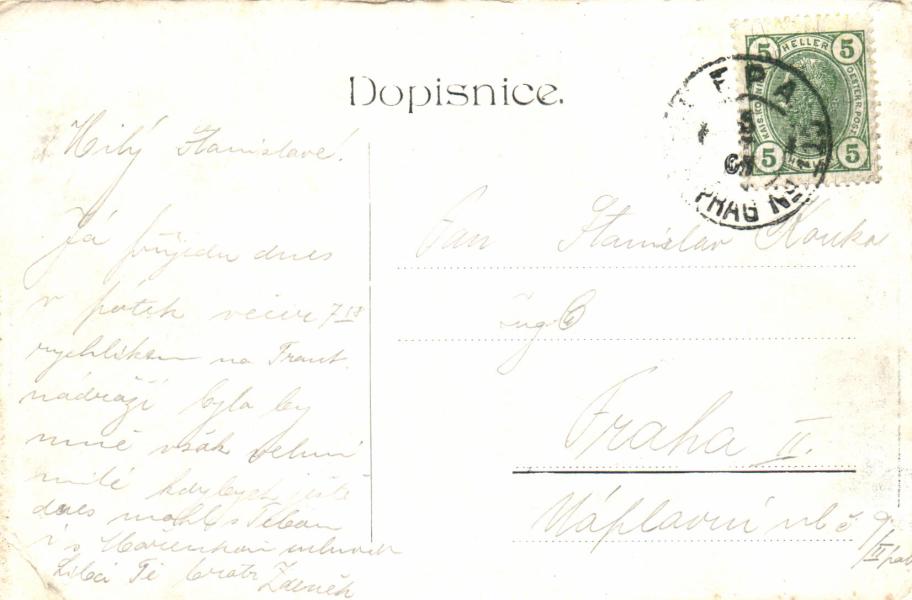 Dopisnice.
5 HELLER 5
KAIS. KÖN. OESTERR. POST
5 5
PRAG No
Milý Stanislave!
Já přijedu dnes
v pátek večer 7 18
rychlíkem na Frant.
nádraží byla by
mně však velmi
milé kdybych ještě
dnes mohl s Tebou
i s Mařenkou mluvit
Líbá Tě bratr Zdeněk
Pan Stanislav Kouka
Praha II.
Náplavní ul č 9